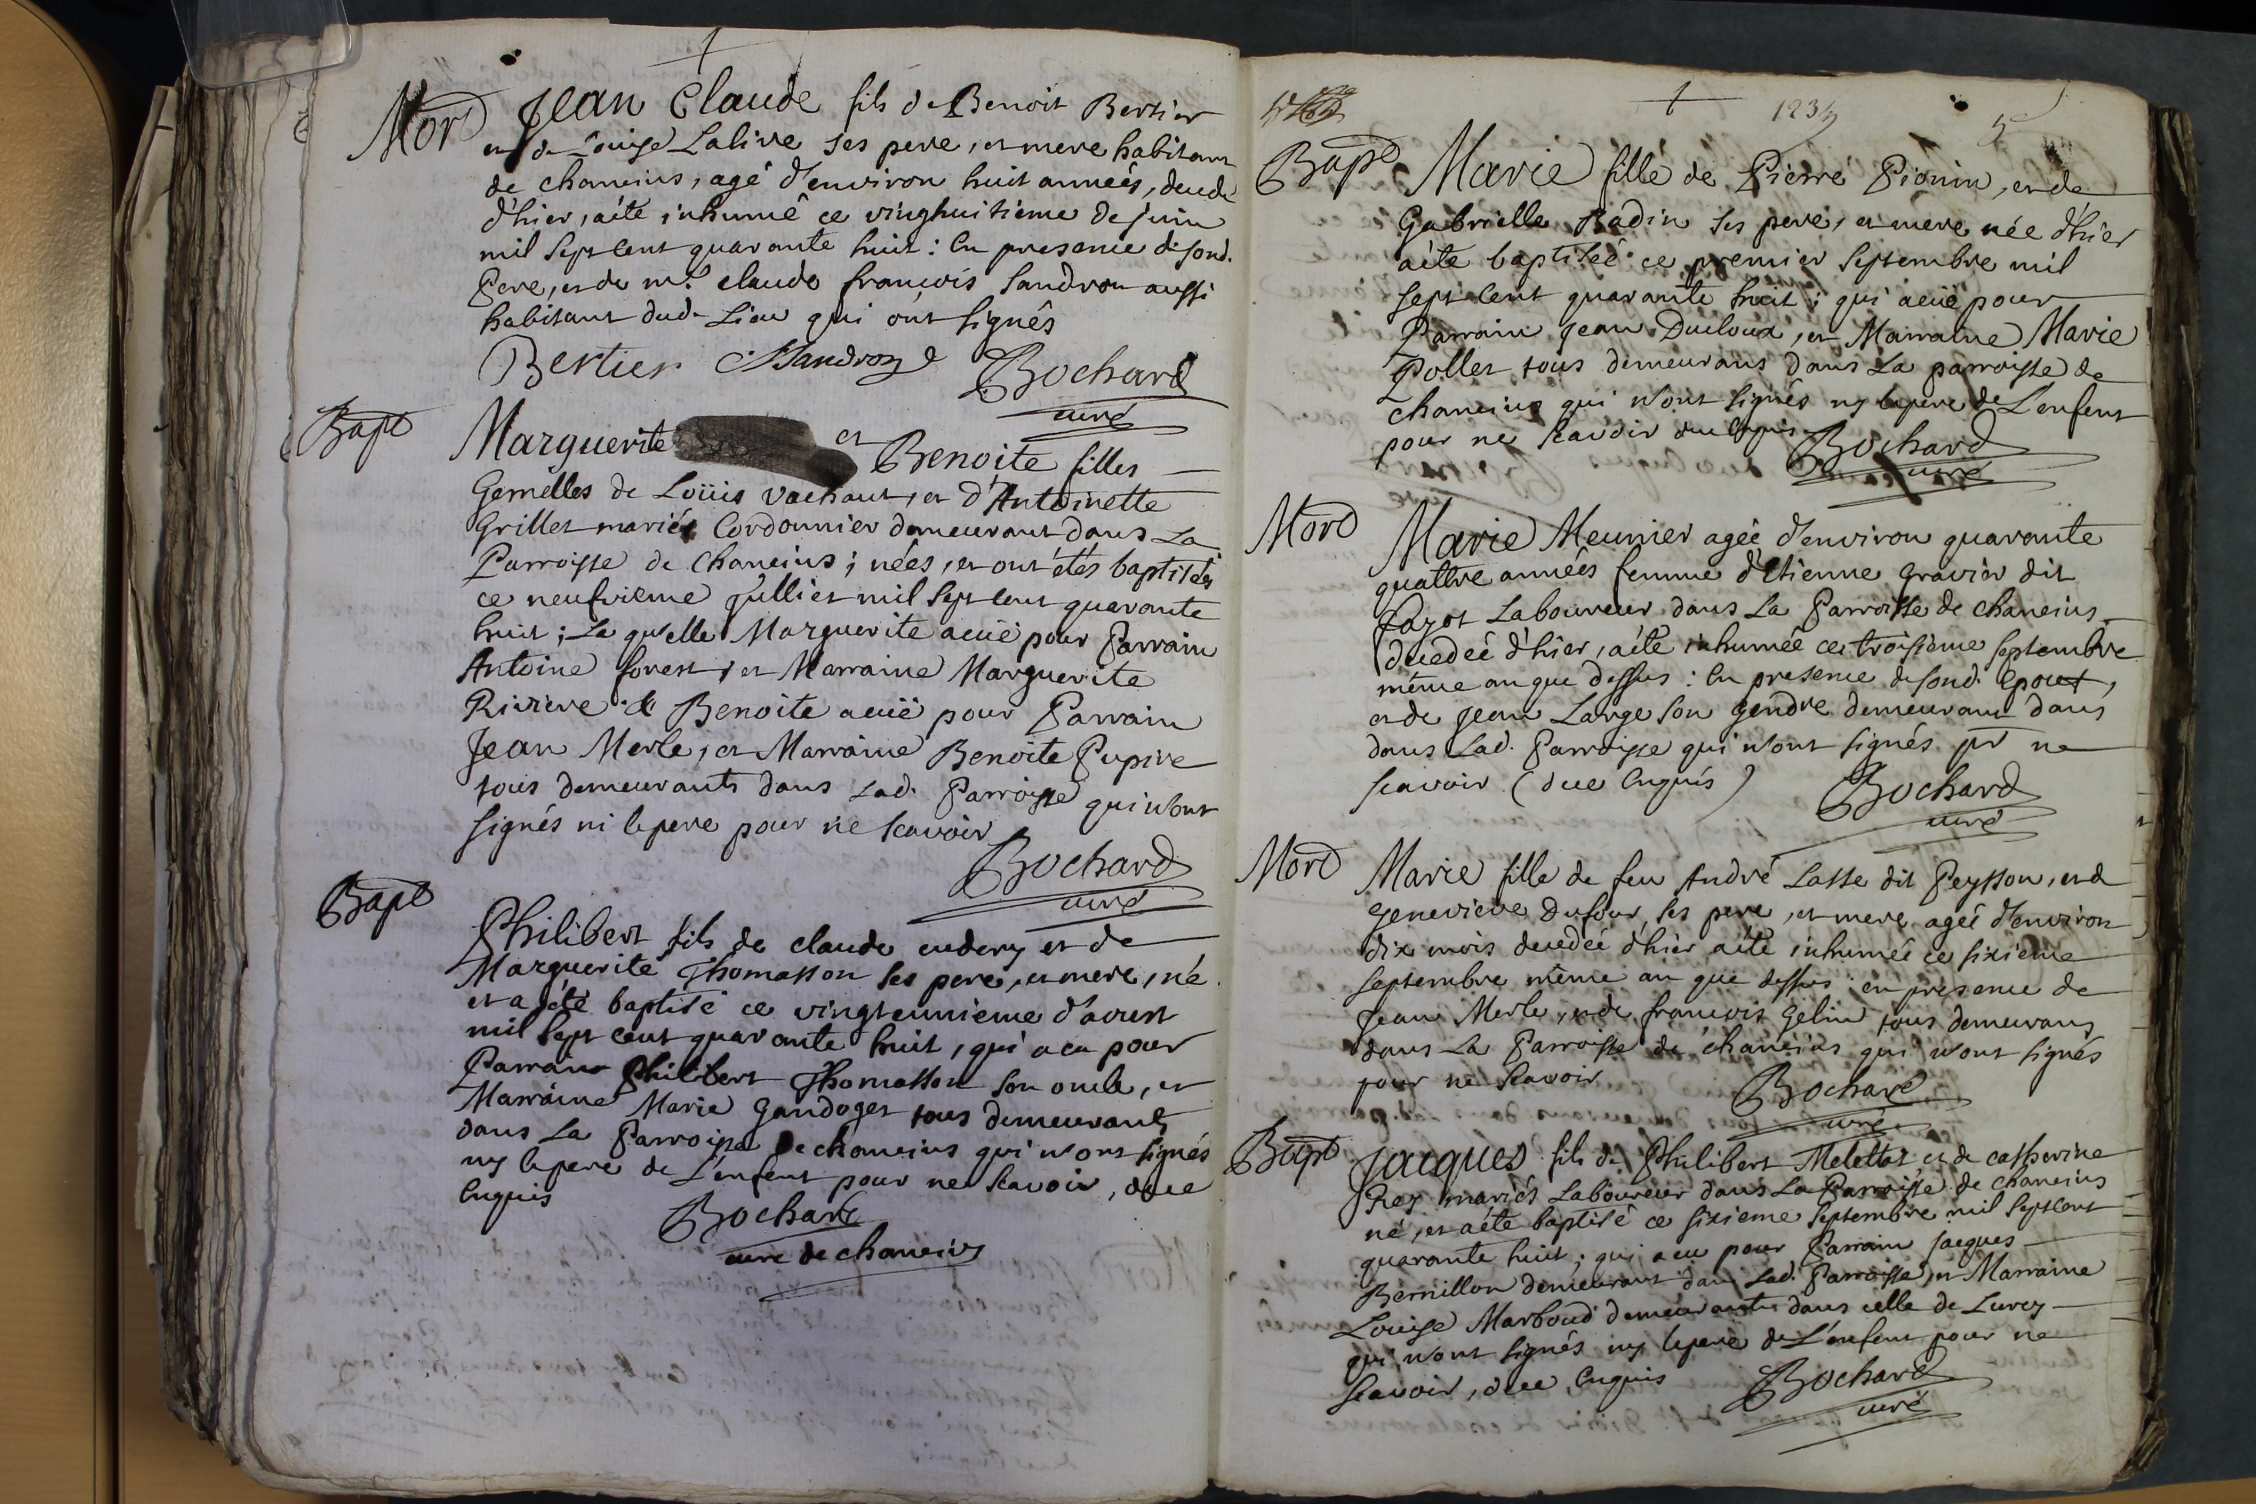 Mort Jean Claude fils de Benoit Bertier
et de Loüise Lalive ses pere, et mere habitant
de chaneins, agé d'environ huit années, decedé
d'hier, a été inhumé ce vinghuitieme de juin
mil sept cent quarante huit : En presence de sond.
Pere, et de mr. claude françois Sandron aussi
habitant dud. Lieu qui ont signés
Bertier Sandron Bochard
curé
Bapt Marguerite et Benoite filles
Gemelles de Loüis Vachant, et d'Antoinette
Grillet mariés Cordonnier demeurant dans La
Parroisse de Chaneins ; nées, et ont étés baptisées
ce neufvieme Jüilliet mil sept cent quarante
huit ; La qu'elle Marguerite a euë pour Parrain
Antoine forest, et Marraine Marguerite
Riviere & Benoite a euë pour Parrain
Jean Merle, et Marraine Benoite Pupire
tous demeurants dans Lad. Parroisse qui n'ont
signés ni le pere pour ne scavoir
Bochard
curé
Bapt
Philibert fils de claude cudery et de
Marguerite Thomasson ses pere, et mere, né
et a été baptisé ce vingteunieme d'aoust
mil sept cent quarante huit, qui a eu pour
Parrain Philibert Thomasson son oncle, et
Marraine Marie Gandoger tous demeurants
dans La Parroisse De chaneins qui n'ont signés
ny le pere de L'enfent pour ne scavoir, due
Enquis
Bochard
curé de chaneins
1234
Bapt Marie fille de Pierre Pionin, et de
Gabrielle Badin ses pere, et mere née d'hier
a été baptisée ce premier septembre mil
sept cent quarante huit ; qui a eüe pour
Parrain Jean Ducloux, et Marraine Marie
Pollet tous demeurans dans La parroisse de
chaneins qui n'ont signés ny le pere de L'enfent
pour ne scavoir due Enquis Bochard
curé
Mort Marie Meunier agée d'environ quarante
quattre années femme d'Etienne Gravier dit
Fayot Laboureur dans La Parroisse de chaneins
decedée d'hier, a été inhumée ce troisieme septembre
même an que dessus : En presence de sond. Epoux,
et de Jean Large son gendre demeurant dans
dans Lad. Parroisse qui n'ont signés pr ne
scavoir (due Enquis) Bochard
curé
Mort Marie fille de feu André Lasse dit Peysson, et de
Genevieve Dufour ses pere, et mere, agée d'environ
dix mois decedée d'hier a été inhumée ce sixieme
septembre même an que dessus : en presence de
Jean Merle, et de françois Gelin tous demeurans
dans La Parroisse de chaneins qui n'ont signés
pour ne scavoir Bochard
curé
Bapt Jacques fils de Philibert Melettat et de catherine
Rey mariés Laboureur dans La Parroisse de chaneins
né, et a été baptisé ce sixieme septembre mil sept cent
quarante huit ; qui a eu pour Parrain Jacques
Bernillon demeurant dans Lad. Parroisse, et Marraine
Louise Marboud demeurante dans celle de Lurcy
qui n'ont signés ny le pere de L'enfent pour ne
scavoir, due Enquis Bochard
curé